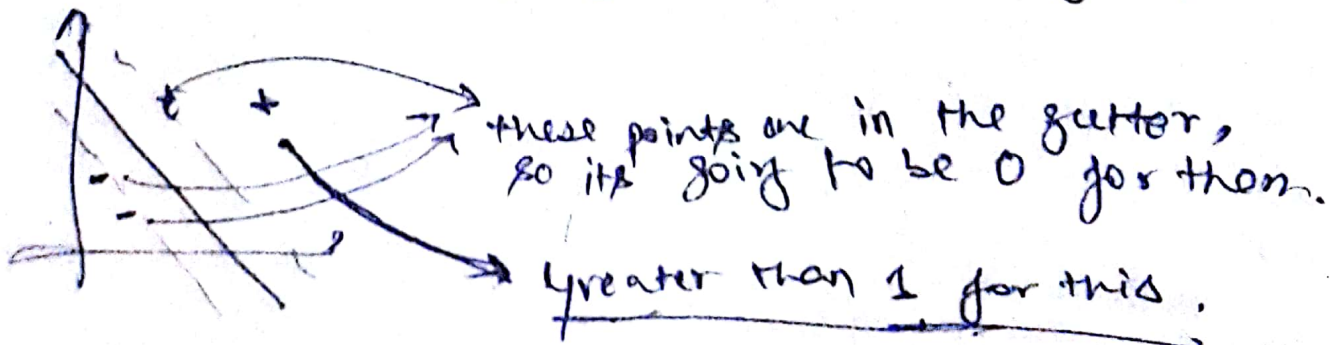 + +
these points are in the gutter,
so its going to be 0 for them.
- -
Greater than 1 for this.